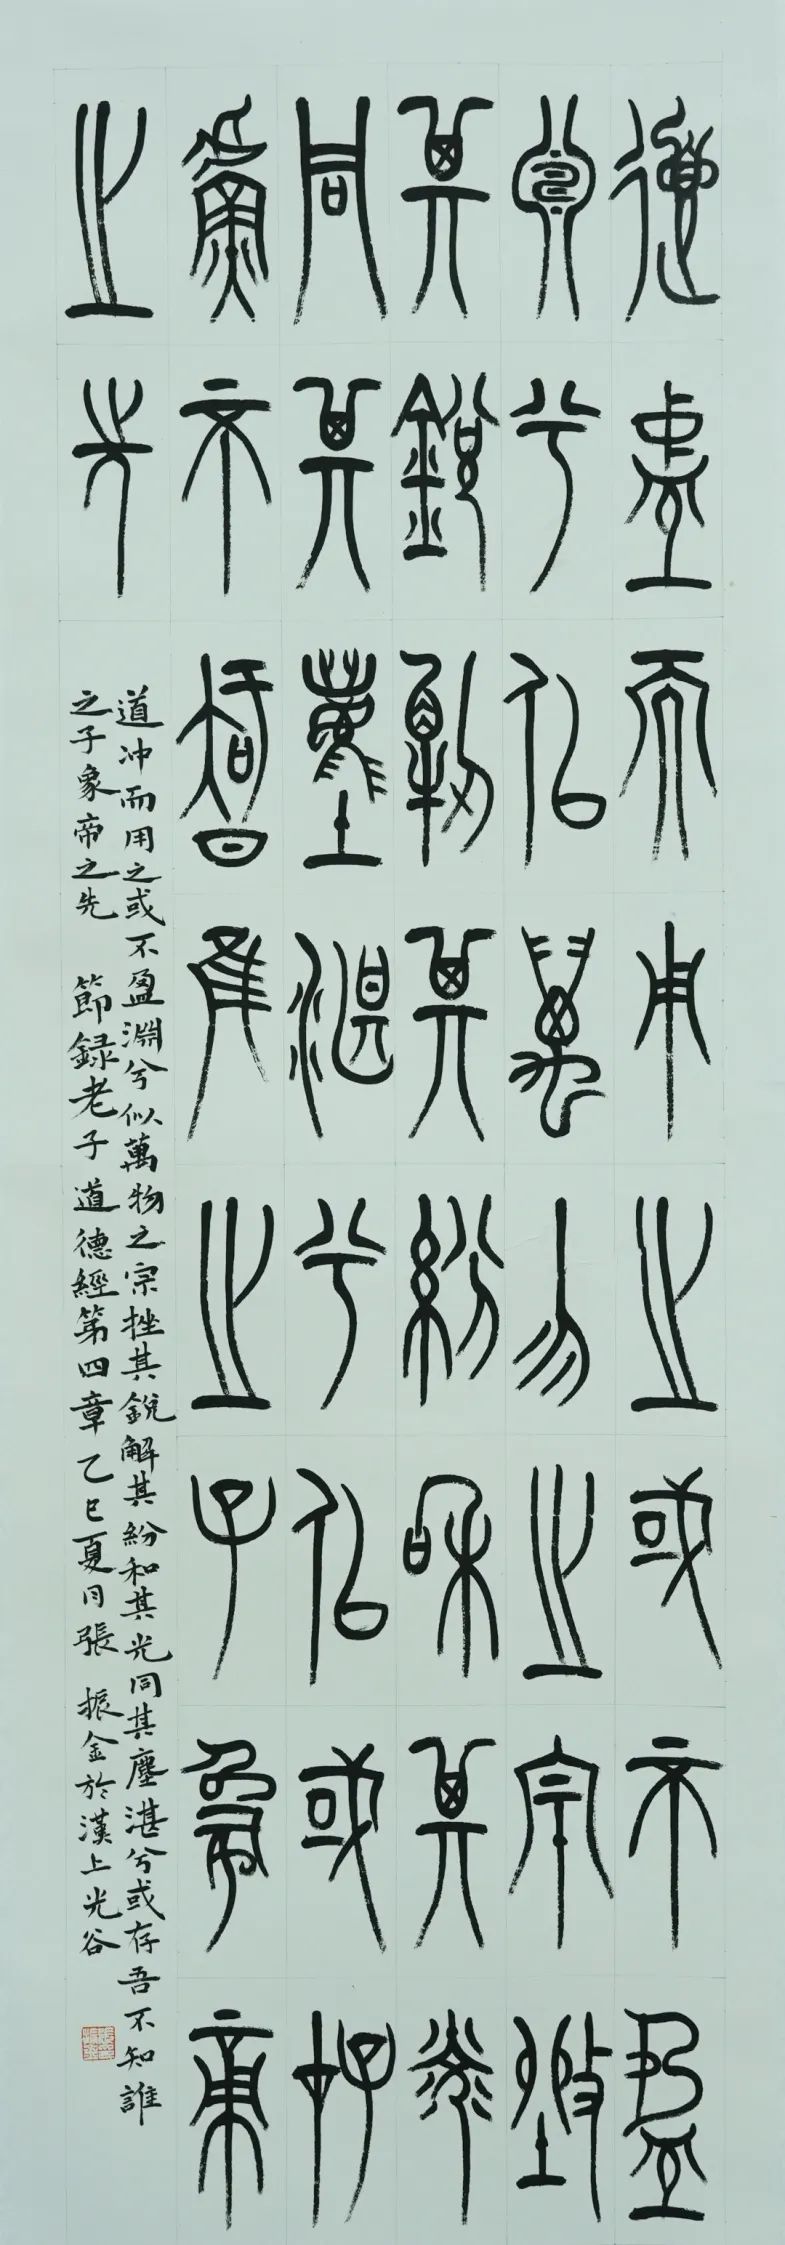 道虚而用之或不盈
淵兮似萬物之宗挫
其銳解其紛和其光
同其塵湛兮似或存
吾不知誰之子象帝
之先
道冲而用之或不盈淵兮似萬物之宗挫其銳解其紛和其光同其塵湛兮或存吾不知誰
之子象帝之先 節録老子道德經第四章乙巳夏月張振金於漢上光谷